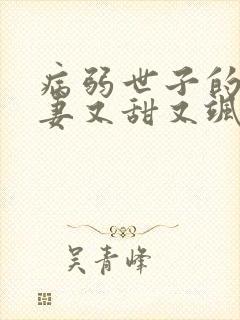 病弱世子的
妻又甜又飒
吴青峰